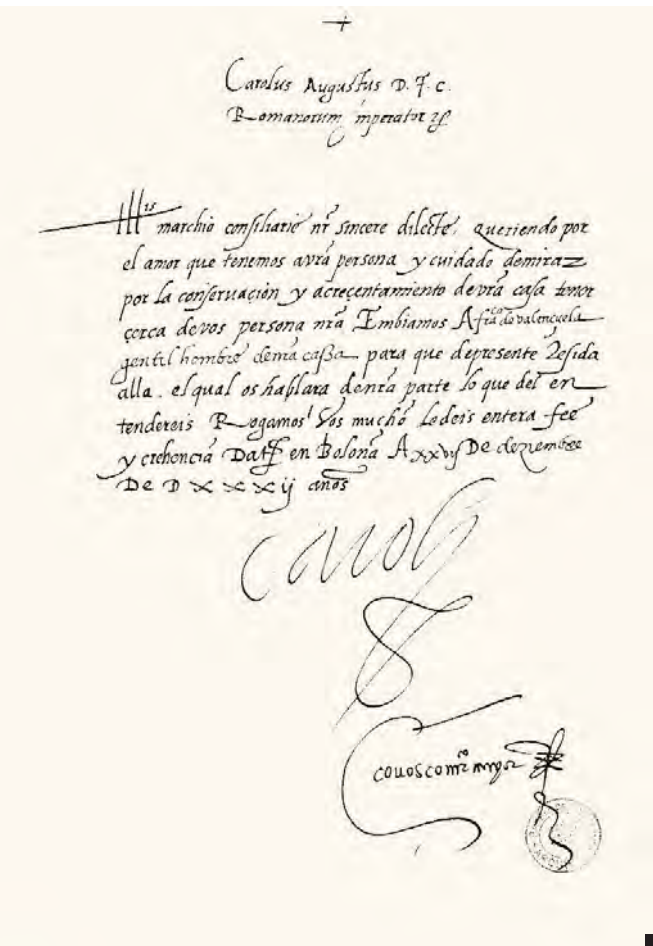 Carolus Augustus D. F. C.
Romanorum imperator
Illis marchio consiliarie nr̃ sincere dilecte. queriendo por
el amor que tenemos a vrã persona y cuidado de mirar
por la conservacion y acreçentamiento de vrã casa tener
çerca de vos persona nrã Embiamos A frãco de valençuela
gentil hombre de nrã cassa para que de presente Resida
alla. el qual os hablara de nrã parte lo que del en
tendereis Rogamos Vos mucho le deis entera fee
y crehencia Datf en Bolonã A xxvij De deziembre
De D xxxij años
Carolus
covos comr̃ mayor